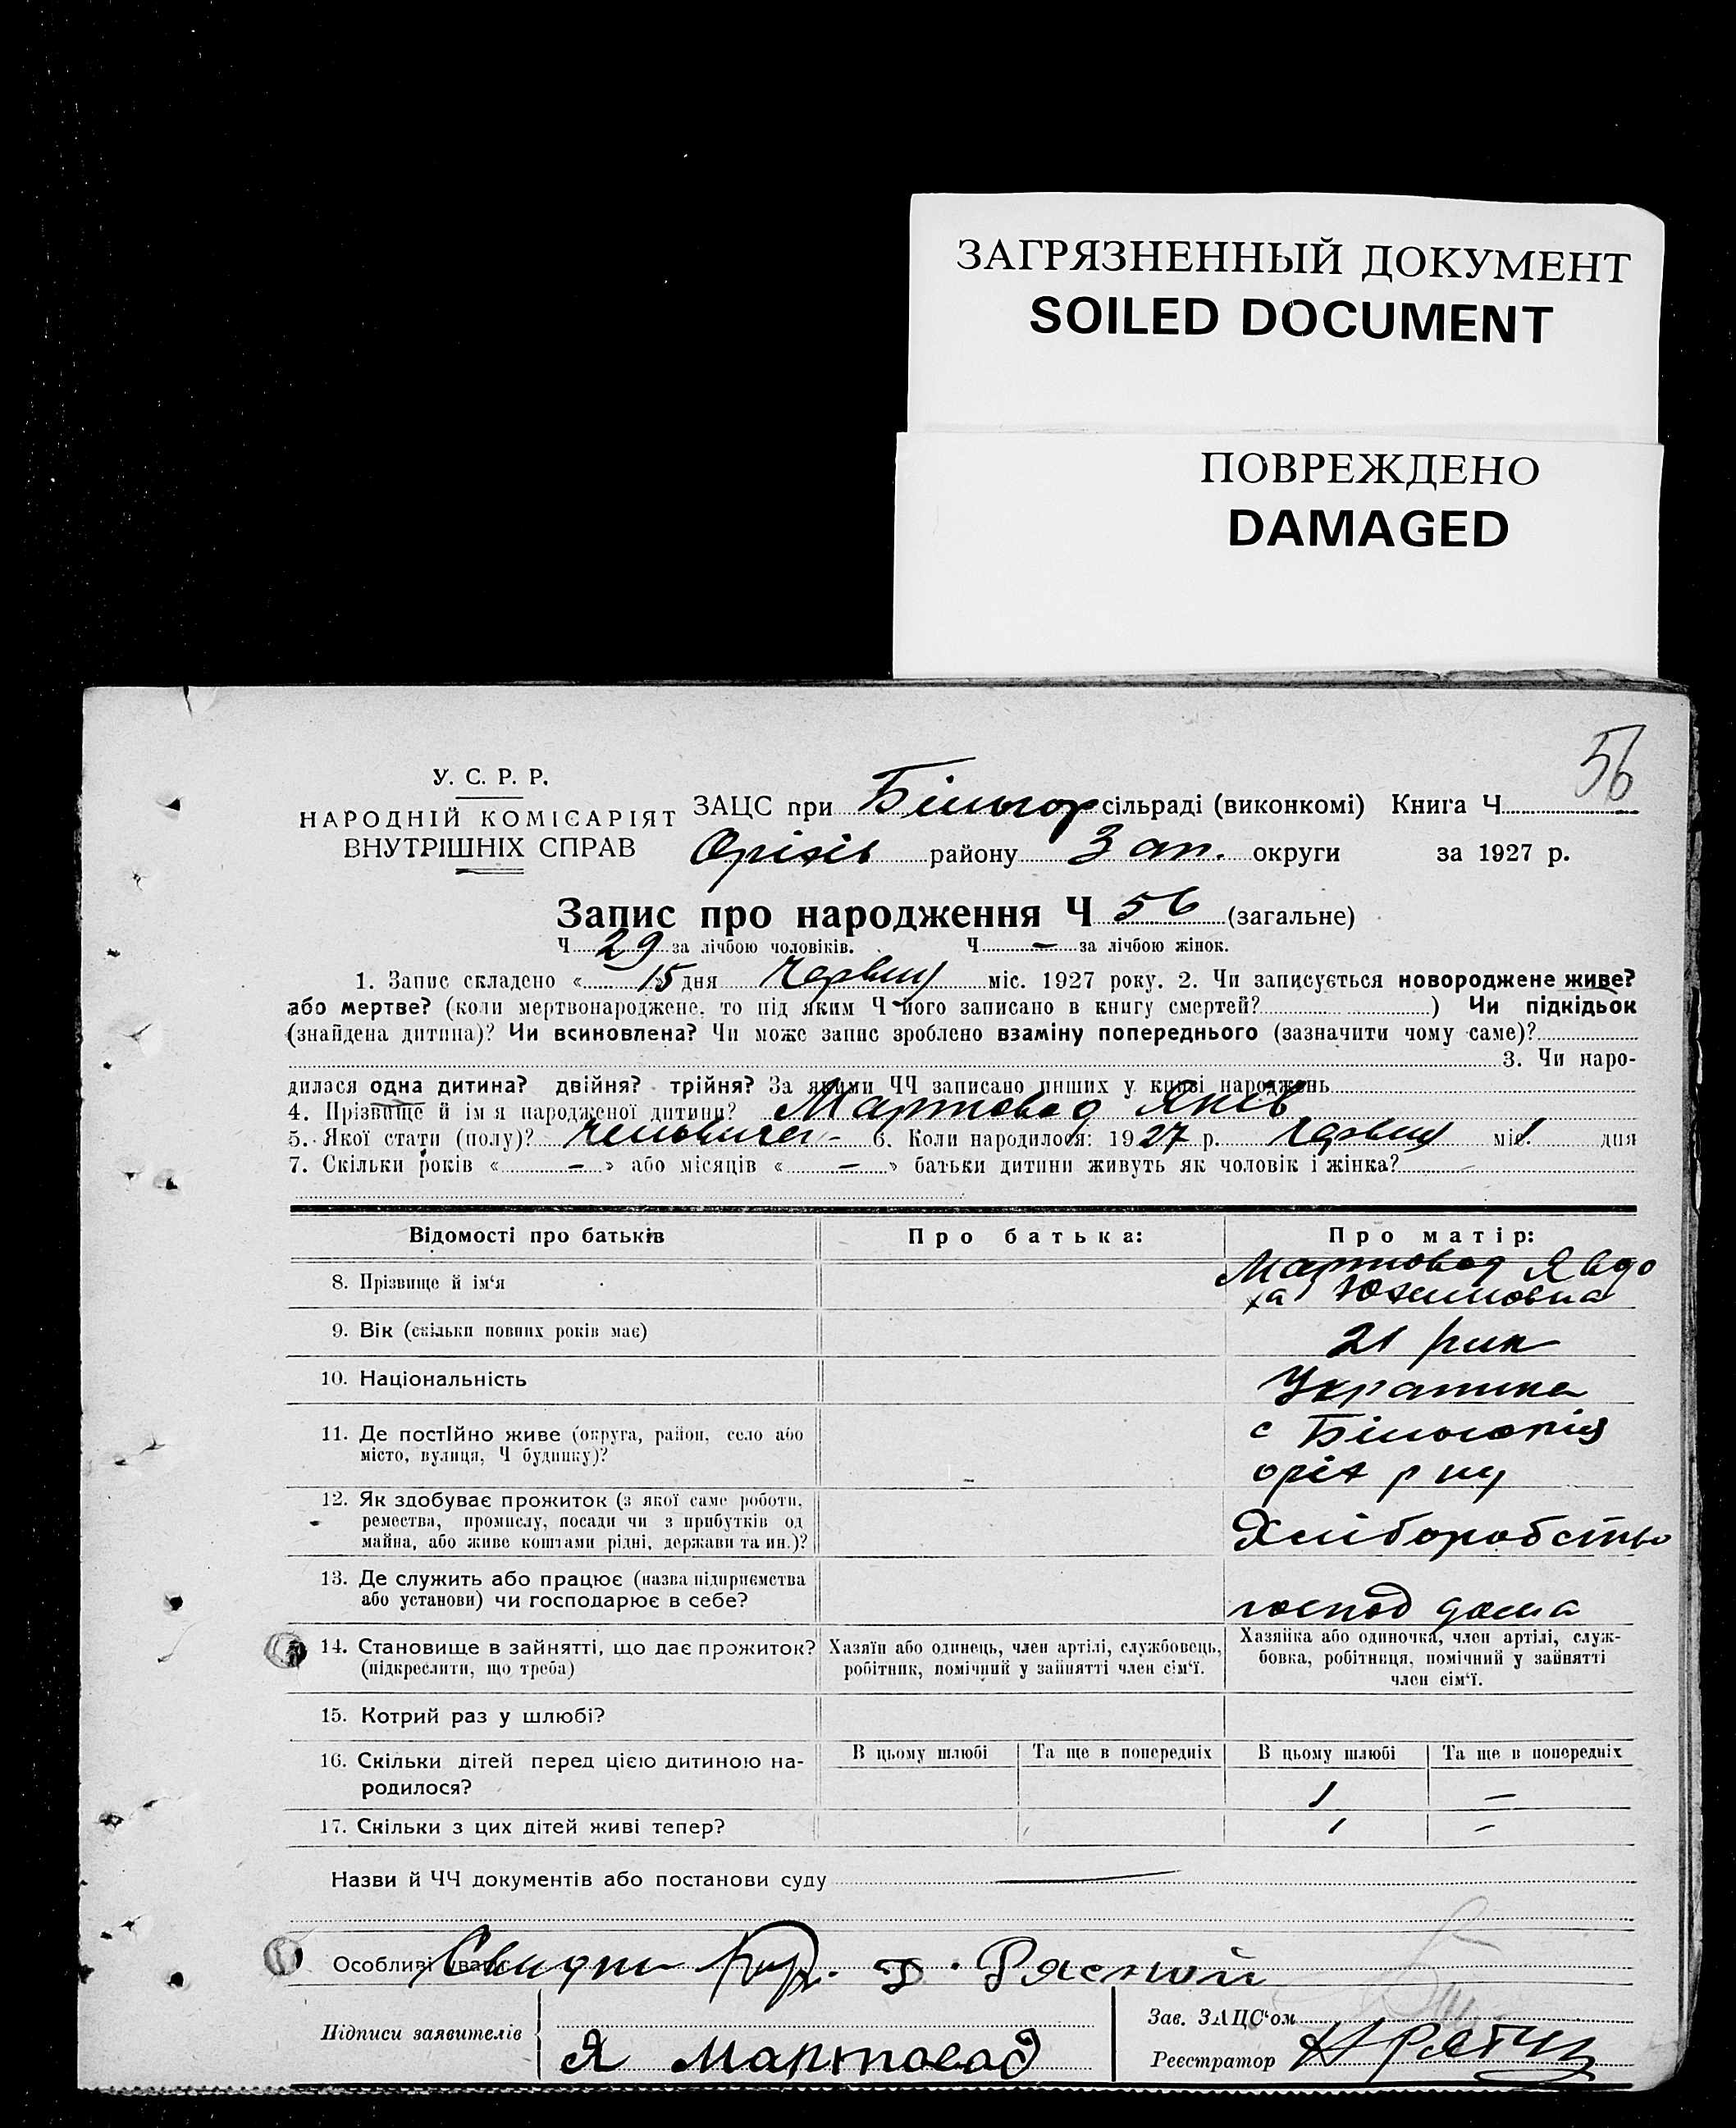 ЗАГРЯЗНЕННЫЙ ДОКУМЕНТ
SOILED DOCUMENT
ПОВРЕЖДЕНО
DAMAGED
56
У. С. Р. Р.
НАРОДНІЙ КОМІСАРІЯТ
ВНУТРІШНІХ СПРАВ
ЗАЦС при Білогор сільраді (виконкомі) Книга Ч.
Оріхів району Зап. округи за 1927 р.
Запис про народження Ч 56 (загальне)
Ч 29 за лічбою чоловіків. Ч — за лічбою жінок.
1. Запис складено « 15 дня червня міс. 1927 року. 2. Чи записується новороджене живе?
або мертве? (коли мертвонароджене, то під яким Ч його записано в книгу смертей? ) Чи підкідьок
(знайдена дитина)? Чи всиновлена? Чи може запис зроблено взаміну попереднього (зазначити чому саме)?
3. Чи наро-
дилася одна дитина? двійня? трійня? За якими ЧЧ записано инших у книзі народжень
4. Прізвище й ім'я народженої дитини? Мартовод Яків
5. Якої стати (полу)? 6. Коли народилося: 1927 р. червня міс. 1 дня
7. Скільки років « — » або місяців « — » батьки дитини живуть як чоловік і жінка?
Відомості про батьків
Про батька:
Про матір:
8. Прізвище й ім'я
Мартовод Явдо
ха
9. Вік (скільки повних років має)
21 рик
10. Національність
Украинка
11. Де постійно живе (округа, район, село або
місто, вулиця, Ч будинку)?
с Білогорія
оріх р ну
12. Як здобуває прожиток (з якої саме роботи,
ремества, промислу, посади чи з прибутків од
майна, або живе коштами рідні, держави та ин.)?
Хліборобство
13. Де служить або працює (назва підприємства
або установи) чи господарює в себе?
господ дома
14. Становище в зайнятті, що дає прожиток?
(підкреслити, що треба)
Хазяїн або одинець, член артілі, службовець,
робітник, помічний у зайнятті член сім'ї.
Хазяйка або одиночка, член артілі, служ-
бовка, робітниця, помічний у зайнятті
член сім'ї.
15. Котрий раз у шлюбі?
16. Скільки дітей перед цією дитиною на-
родилося?
В цьому шлюбі Та ще в попередніх В цьому шлюбі Та ще в попередніх
1 —
17. Скільки з цих дітей живі тепер?
1 —
Назви й ЧЧ документів або постанови суду
Особливі уваги Рясной
Підписи заявителів
Я Мартовод
Зав. ЗАЦС'ом
Реєстратор